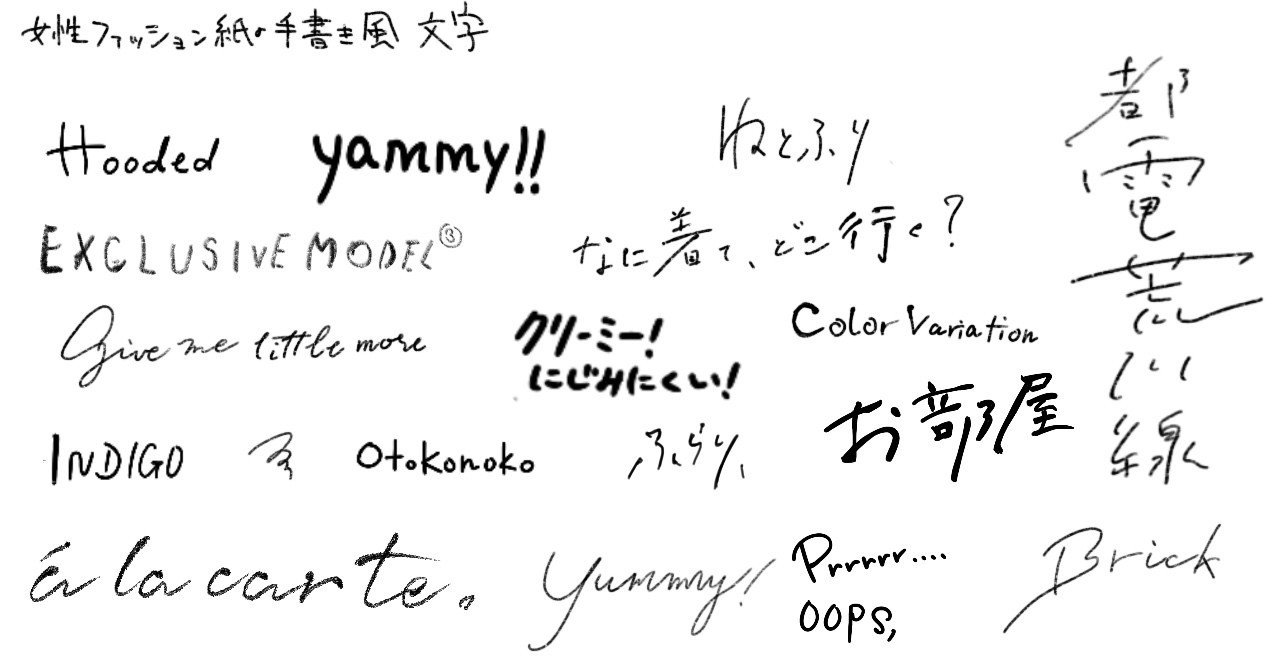 女性ファッション紙の手書き風 文字
Hooded
yammy!!
ねとふり
都電荒川線
EXCLUSIVE MODEL③
なに着て、どこ行く？
Give me little more
クリーミー！
にじみにくい！
Color Variation
お部屋
INDIGO
Otokonoko
ふらり、
á la carte.
Yummy!!
Prrrrrr....
OOPS,
Brick